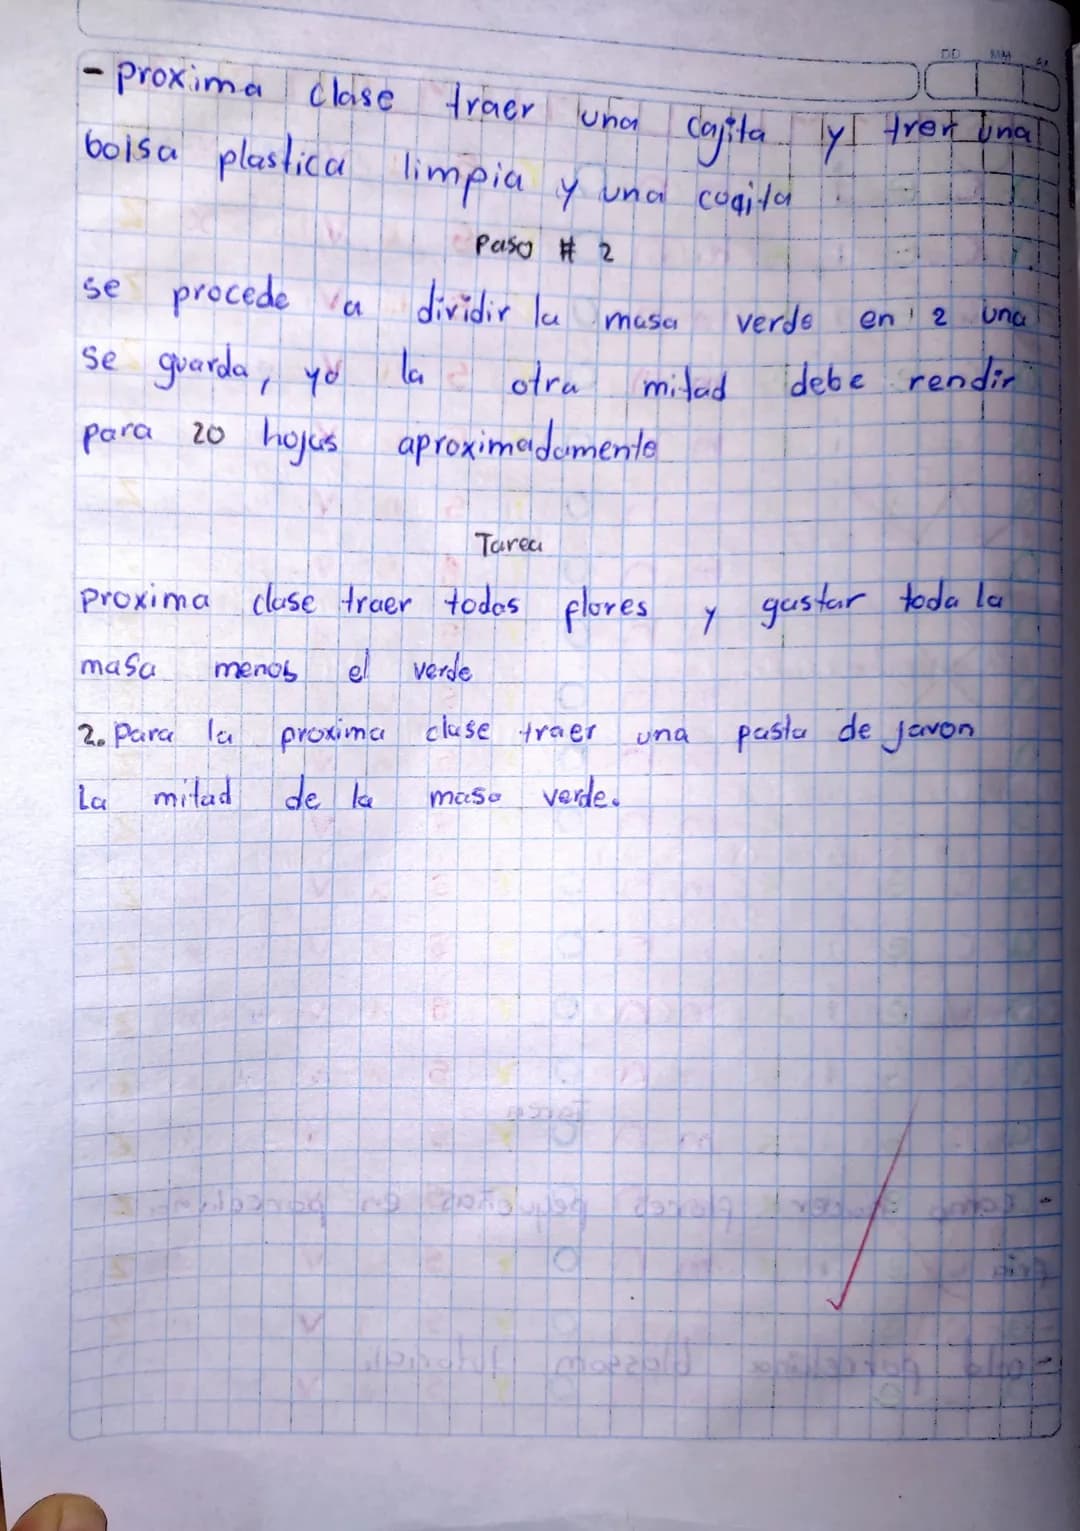 DD MM AA
- proxima clase traer una cajita y trer una
bolsa plastica limpia y una cogita
Paso # 2
se procede a dividir la masa verde en 2 una
se guarda, yo la otra mitad debe rendir
para 20 hojas aproximadamente
Tarea
proxima clase traer todas flores y gastar toda la
masa menos el verde
2. Para la proxima clase traer una pasta de javon
La mitad de la masa verde.